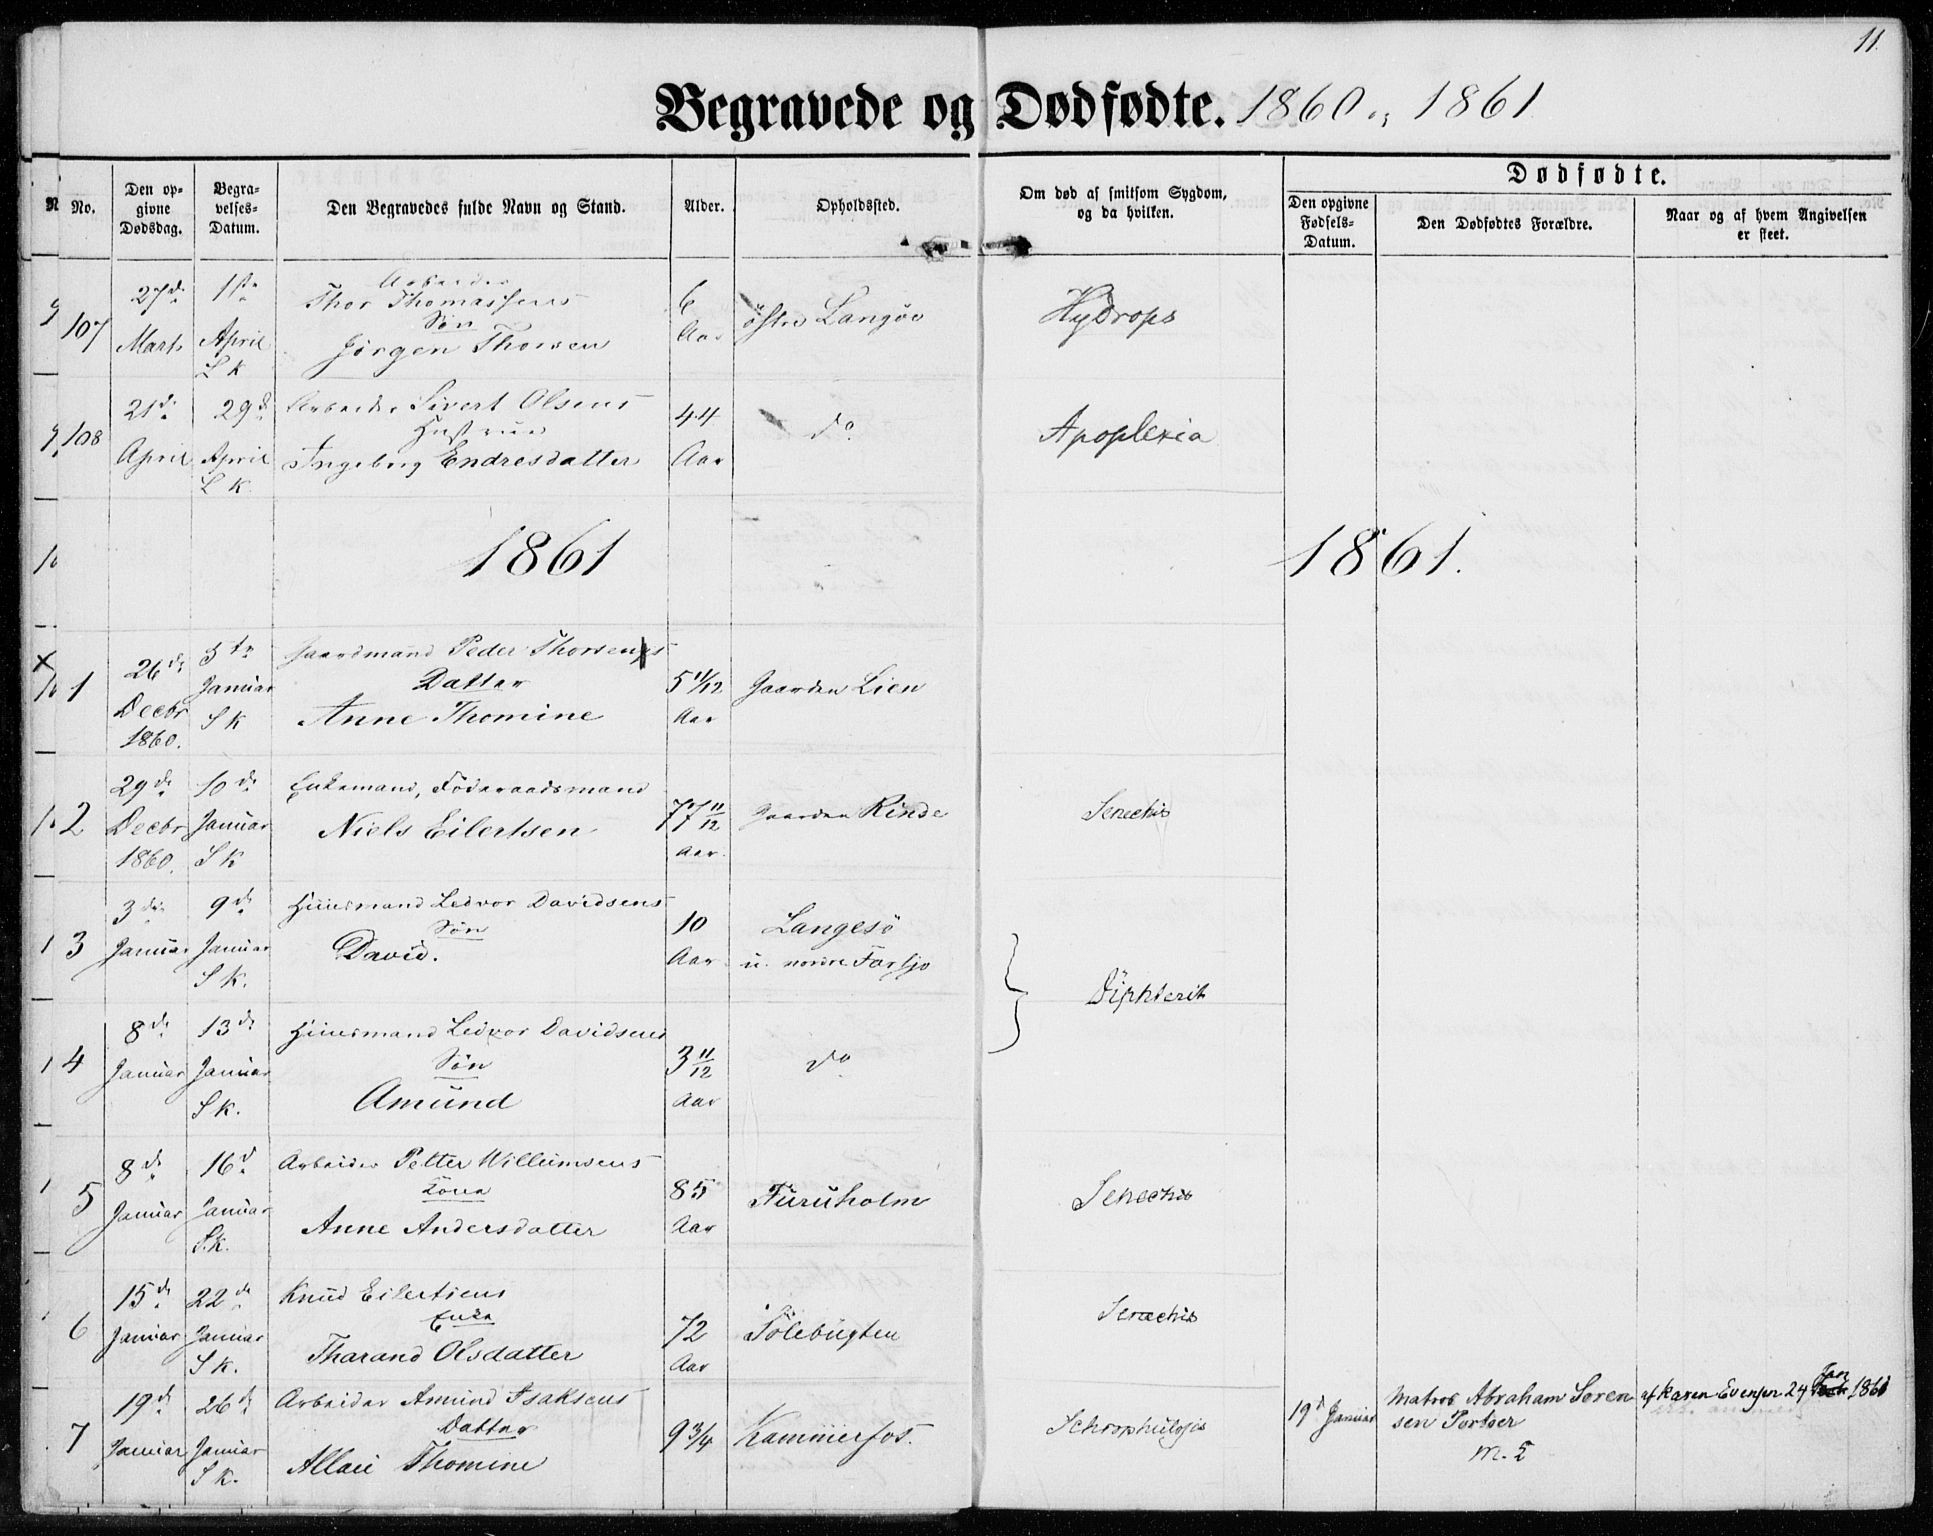 11.
Begravede og Dødfødte. 1860 og 1861
No.
Den opgivne Dødsdag.
Begravelses-Datum.
Den Begravedes fulde Navn og Stand.
Alder.
Opholdssted.
Om død af smitsom Sygdom, og da hvilken.
Dødfødte.
Den opgivne Fødsels-Datum.
Den Dødfødtes Forældre.
Naar og af hvem Angivelsen er skeet.
107
27de Marts
1ste April
L k
Arbeider
Thor Thomassens
Søn
Jørgen Thorsen
6 Aar
østre Langøe
Hydrops
108
21de April
29de April
L k.
Arbeider Sivert Olsens
Hustrue
Ingeborg Endresdatter
44 Aar
do.
Apoplexia
1861
1861.
1
26de Decbr 1860.
5te Januar
S k
Gaardmand Peder Thorsens
Datter
Anne Thomine
5 11/12 Aar
Gaarden Lien
2
29de Decbr 1860.
10de Januar
S k
Enkemand, Føderaadsmand
Niels Eilertsen
77 11/12 Aar.
Gaarden Rinde
Senectus
3
3die Januar
9de Januar
S k.
Huusmand Ledvor Davidsens
Søn
David.
10 Aar
Langesö
u. nordre Farsjø
Diphterit
4
8de Januar
13de Januar
S k.
Huusmand Ledvor Davidsens
Søn
Amund
3 11/12 Aar
do
5
8de Januar
16de Januar
S. k.
Arbeider Petter Willumsens
Kona
Anne Andersdatter
85 Aar
Furuholm
Senectus
6
15de Januar
22de Januar
S k.
Knud Eilertsens
Enke
Tharand Olsdatter
72 Aar
Tolebugten
Senectus
7
19de Januar
26de Januar
S k.
Arbeider Amund Isaksens
Datter
Allau Thomine
9 3/4
Kammerfos.
Schrophulosis
19d Januar
Matros Abraham Sørensen
m.
af Karen Evensen 24 Jan 1861